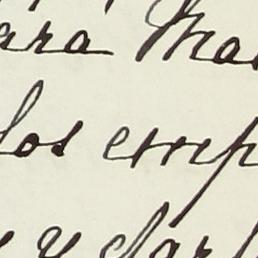 ara Ma
los emp
y dar